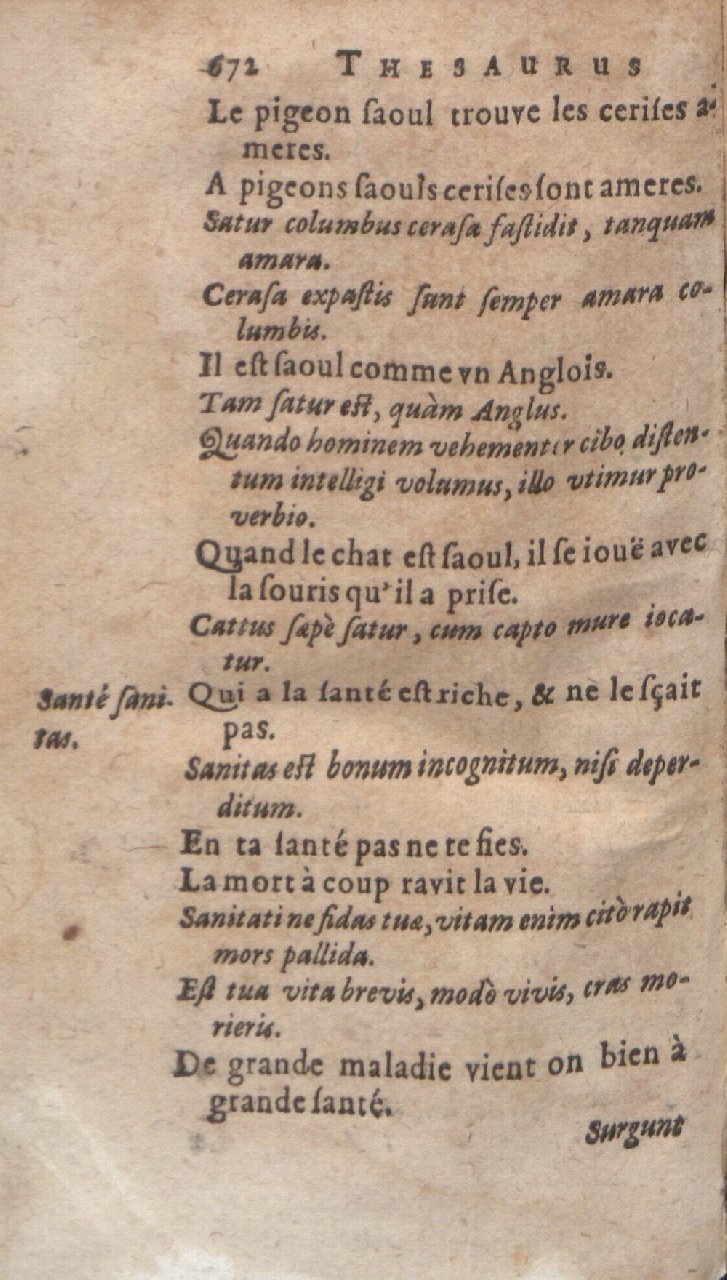 672 THESAURUS
Le pigeon ſaoul trouve les ceriſes a-
meres.
A pigeons ſaouls ceriſes ſont ameres.
Satur columbus ceraſa faſtidit, tanquam
amara.
Ceraſa expaſtis ſunt ſemper amara co-
lumbis.
Il eſt ſaoul comme vn Anglois.
Tam ſatur eſt, quàm Anglus.
Quando hominem vehementer cibo diſten-
tum intelligi volumus, illo vtimur pro-
verbio.
Quand le chat eſt ſaoul, il ſe iouë avec
la ſouris qu'il a priſe.
Cattus ſæpè ſatur, cum capto mure ioca-
tur.
Santé ſani-
tas.
Qui a la ſanté eſt riche, & ne le ſçait
pas.
Sanitas eſt bonum incognitum, niſi deper-
ditum.
En ta ſanté pas ne te fies.
La mort à coup ravit la vie.
Sanitati ne fidas tuæ, vitam enim citò rapit
mors pallida.
Eſt tua vita brevis, modò vivis, cras mo-
rieris.
De grande maladie vient on bien à
grande ſanté.
Surgunt